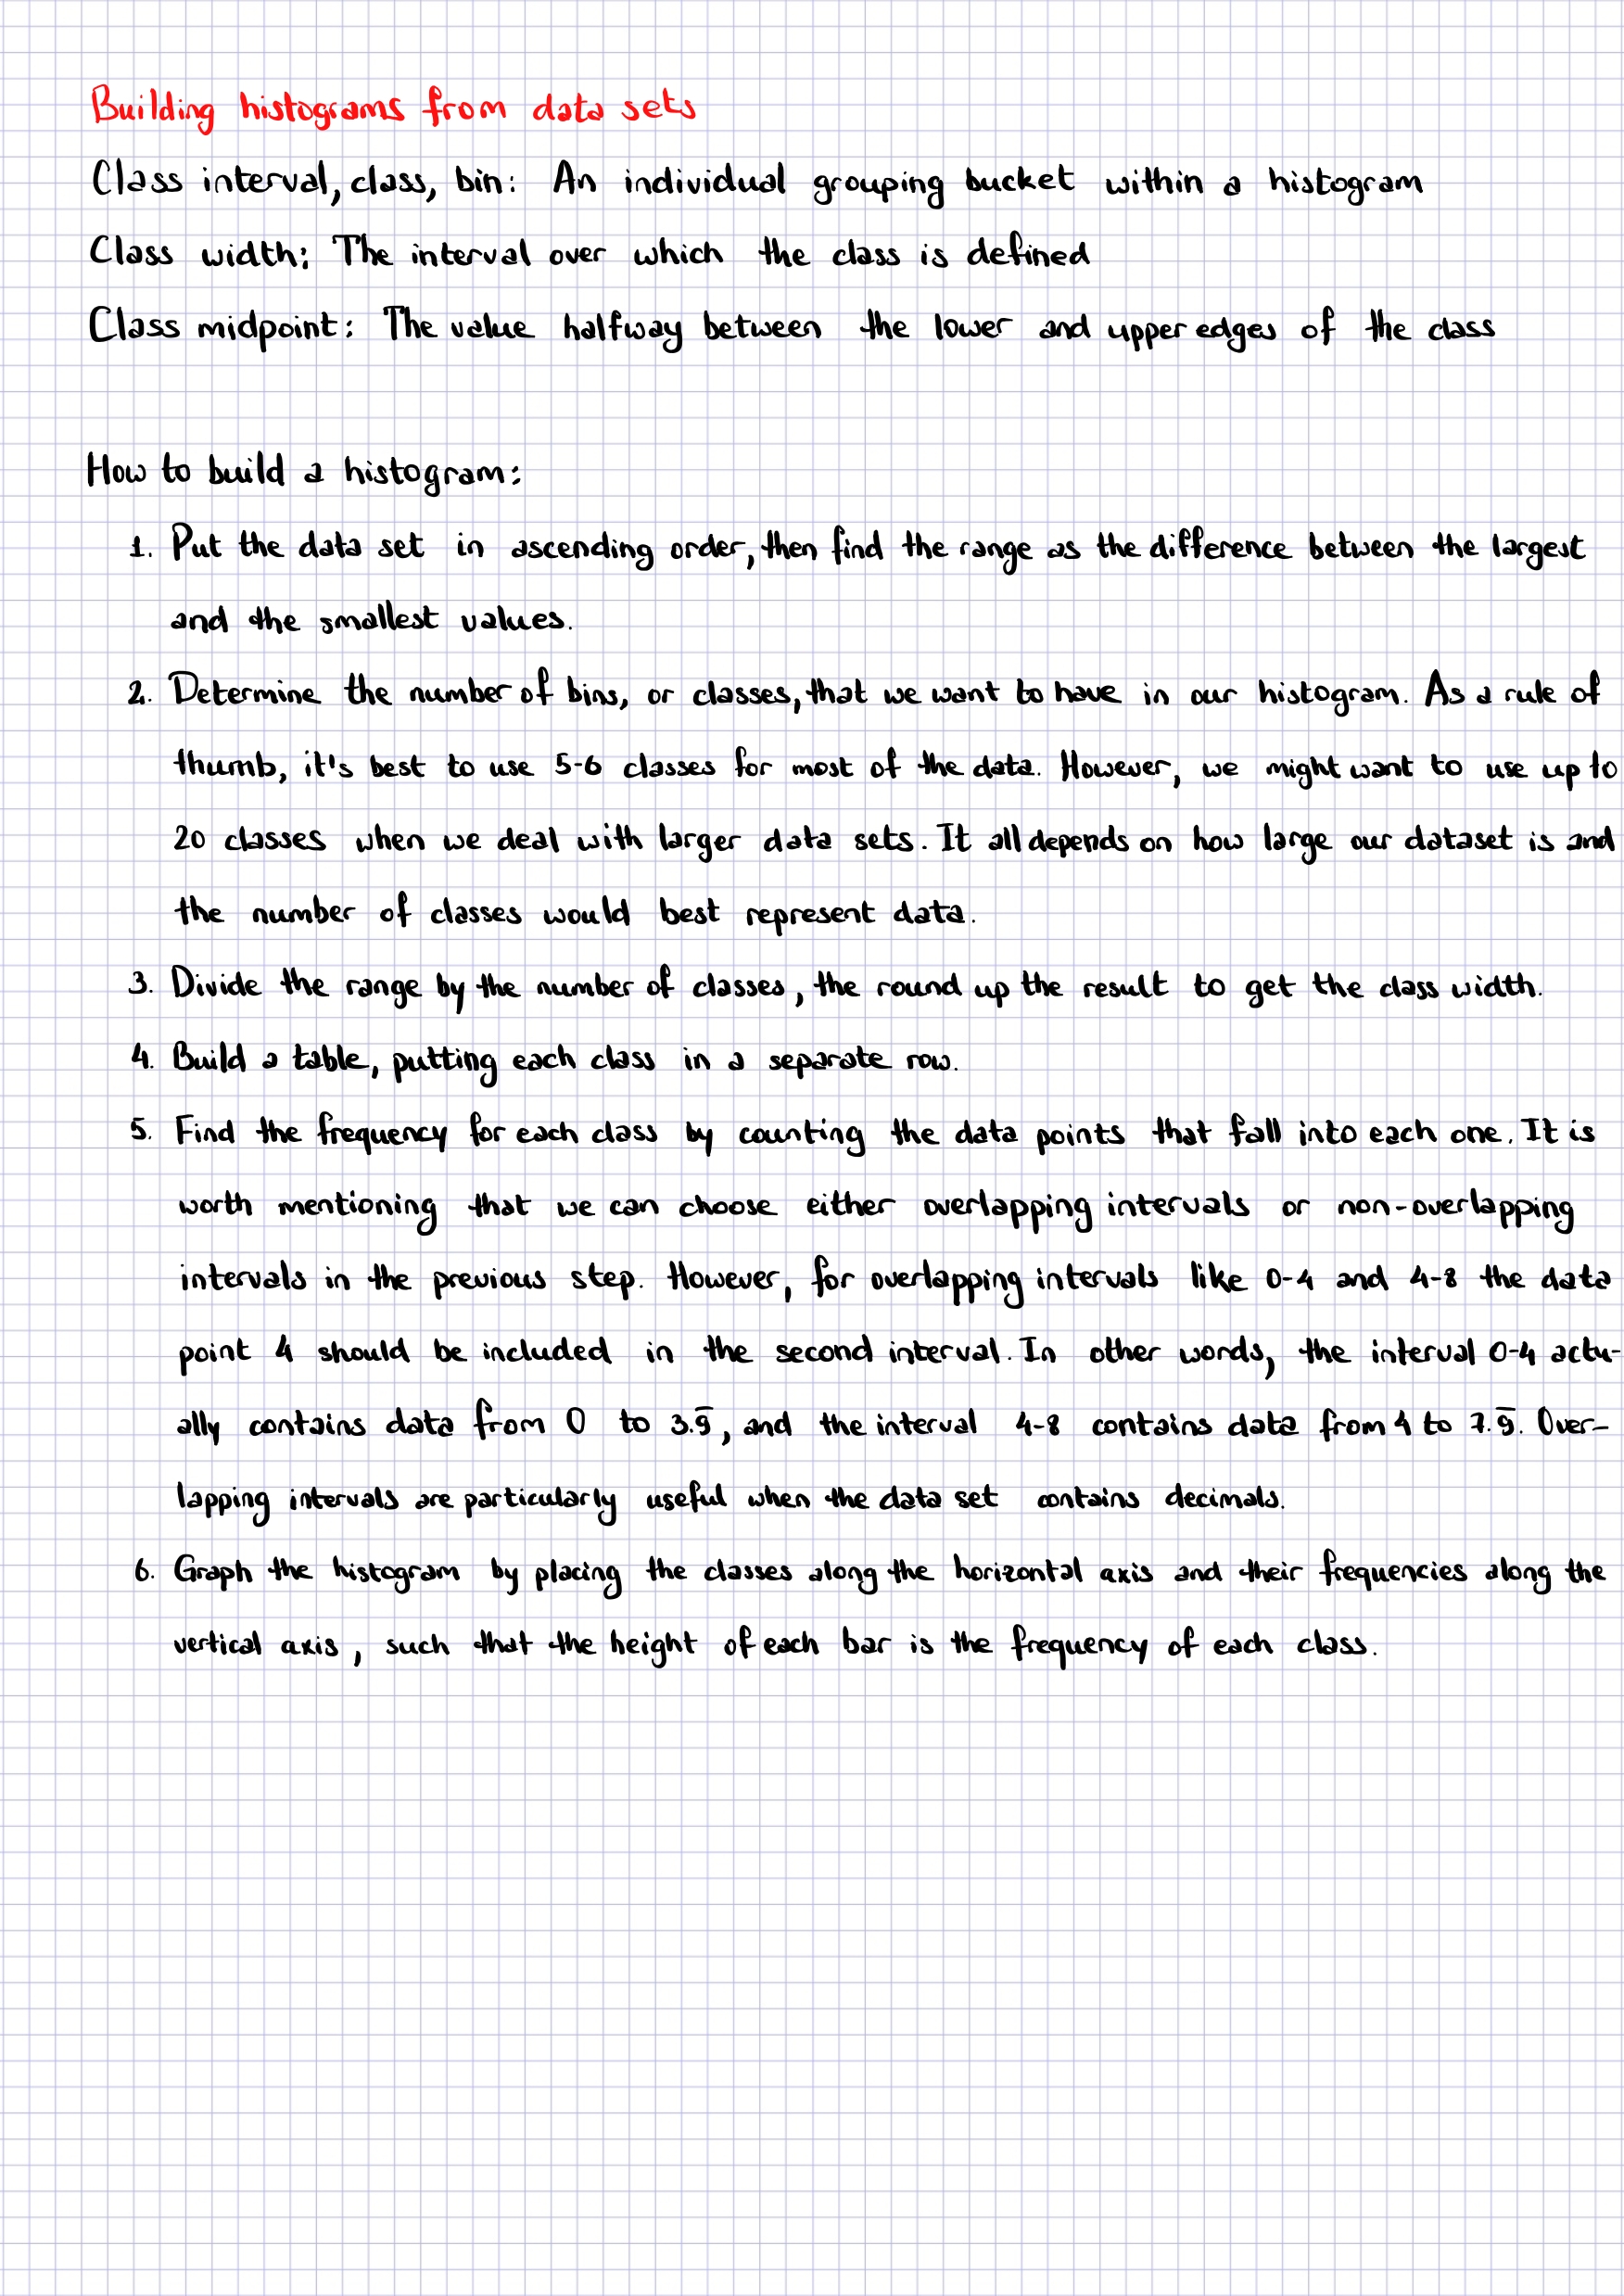 Building histograms from data sets
Class interval, class, bin: An individual grouping bucket within a histogram
Class width: The interval over which the class is defined
Class midpoint: The value halfway between the lower and upper edges of the class
How to build a histogram:
1. Put the data set in ascending order, then find the range as the difference between the largest
and the smallest values.
2. Determine the number of bins, or classes, that we want to have in our histogram. As a rule of
thumb, it's best to use 5-6 classes for most of the data. However, we might want to use up to
20 classes when we deal with larger data sets. It all depends on how large our dataset is and
the number of classes would best represent data.
3. Divide the range by the number of classes, the round up the result to get the class width.
4. Build a table, putting each class in a separate row.
5. Find the frequency for each class by counting the data points that fall into each one. It is
worth mentioning that we can choose either overlapping intervals or non-overlapping
intervals in the previous step. However, for overlapping intervals like 0-4 and 4-8 the data
point 4 should be included in the second interval. In other words, the interval 0-4 actu-
ally contains data from 0 to 3.9̅, and the interval 4-8 contains data from 4 to 7.9̅. Over-
lapping intervals are particularly useful when the data set contains decimals.
6. Graph the histogram by placing the classes along the horizontal axis and their frequencies along the
vertical axis, such that the height of each bar is the frequency of each class.